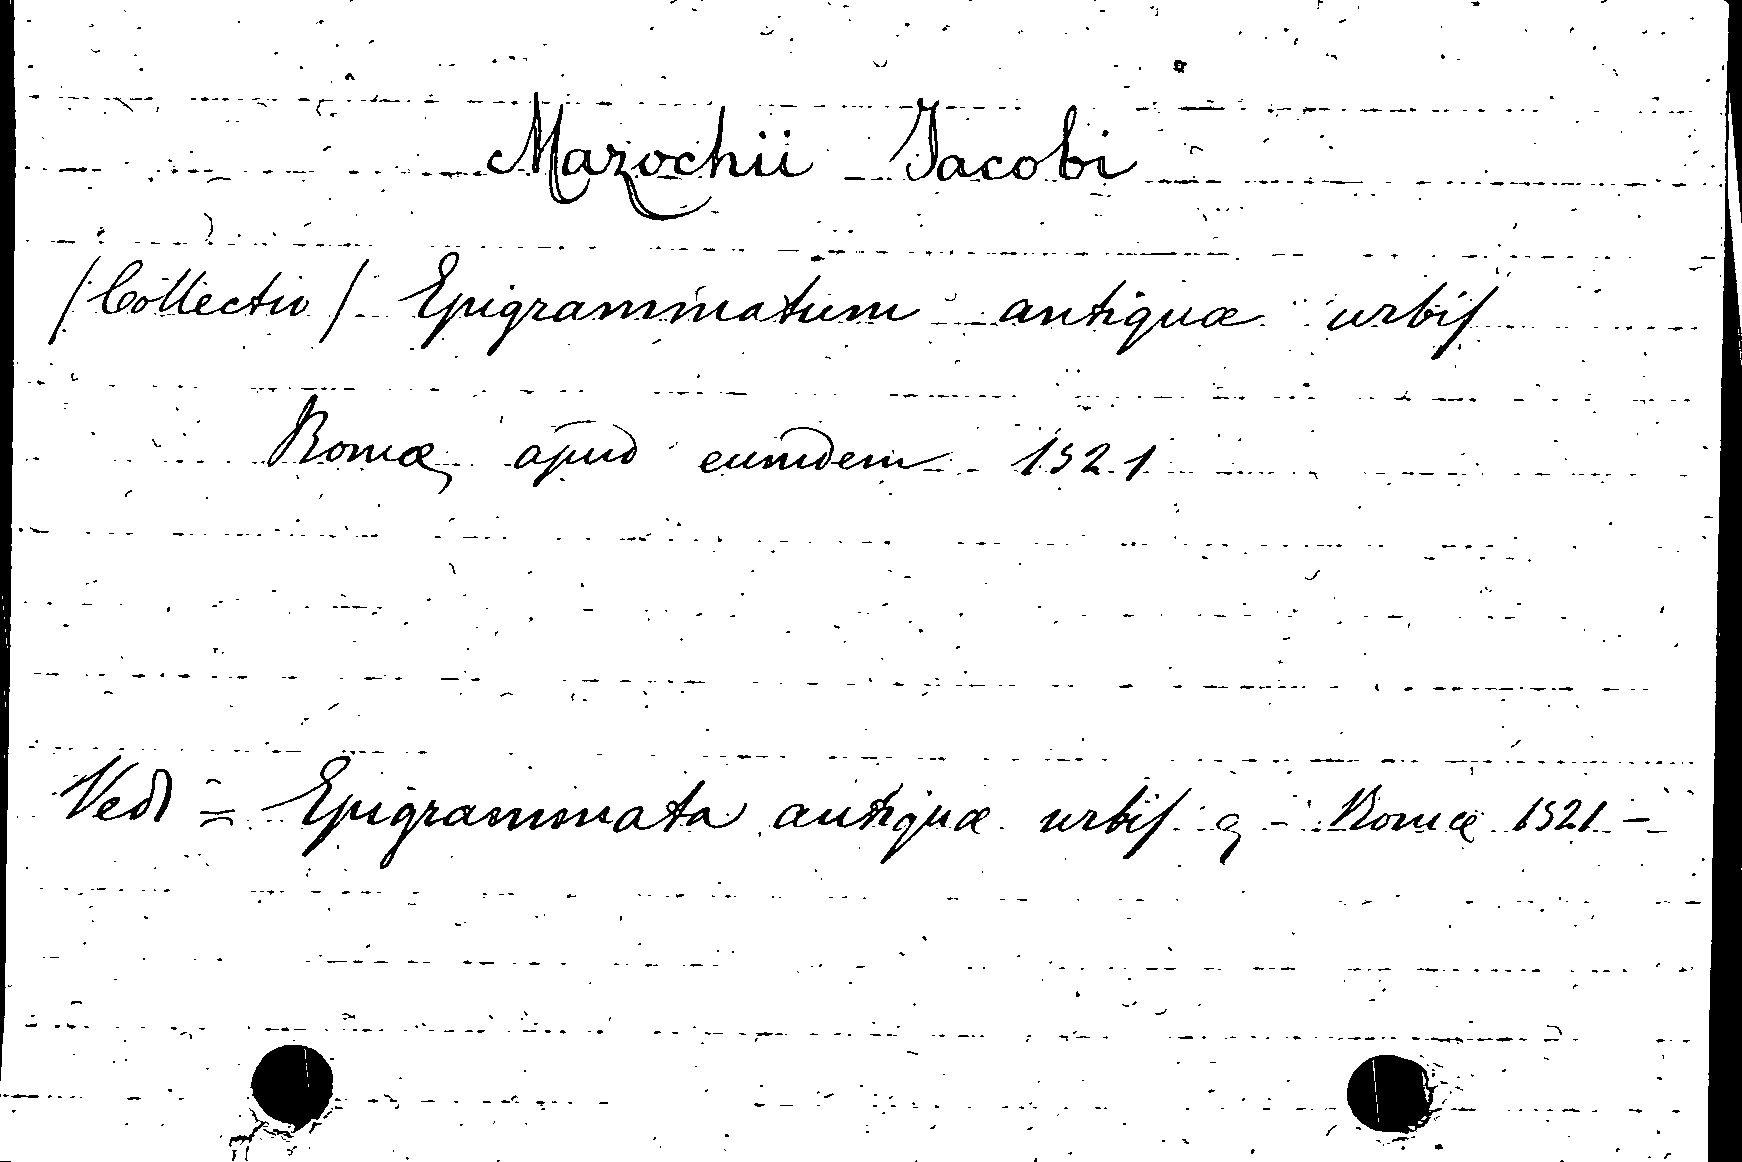 Mazochii Jacobi
/Collectio/ Epigrammatum antiquæ urbis
Romæ, apud eumdem 1521
Vedi = Epigrammata antiquæ urbis - Romæ 1521 -